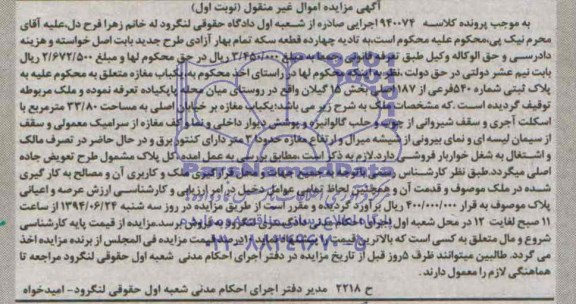 آگهی مزایده اموال غیر منقول (نوبت اول)
به موجب پرونده کلاسه ۹۴۰۰۷۴اجرایی صادره از شعبه اول دادگاه حقوقی لنگرود له خانم زهرا فرح دل،علیه آقای
محرم نیک پی،محکوم علیه محکوم است،به تادیه چهارده قطعه سکه تمام بهار آزادی طرح جدید بابت اصل خواسته و هزینه
دادرسی و حق الوکاله وکیل طبق تعرفه قانونی جمعا به مبلغ ۳/۴۵۰/۰۰۰ ریال در حق محکوم لها و مبلغ ۲/۶۷۲/۵۰۰ ریال
بابت نیم عشر دولتی در حق دولت.نظر به اینکه محکوم لها در راستای اخذ محکوم به یکباب مغازه متعلق به محکوم علیه به
پلاک ثبتی شماره ۵۴۰فرعی از ۱۸۷ اصلی بخش ۱۵ گیلان واقع در روستای میان محله پاپکیاده تعرفه نموده و ملک مربوطه
توقیف گردیده است.که مشخصات ملک به شرح زیر می باشد:یکباب مغازه بر خیابان اصلی به مساحت ۳۳/۸۰ مترمربع با
اسکلت آجری و سقف شیروانی از چوب و حلب گالوانیزه و پوشش دیوار داخلی و نما و کف مغازه از سرامیک معمولی و سقف
از سیمان لیسه ای و نمای بیرونی از شیشه میرال و ارتفاع مغازه حدودا ۳ متر دارای کنتور برق و در حال حاضر در تصرف مالک
و اشتغال به شغل خواربار فروشی دارد.لازم به ذکر است مطابق بررسی به عمل آمده کل پلاک مشمول طرح تعویض جاده
اصلی میگردد.طبق نظر کارشناس رسمی با توجه به جمیع جهات محل قرارگیری ملک و کاربری آن و مصالح به کار گیری
شده در ملک موصوف و قدمت آن و همچنین لحاظ تمامی عوامل دخیل در امر ارزیابی و کارشناسی ارزش عرصه و اعیانی
پلاک موصوف به قرار ۴۰۰/۰۰۰/۰۰۰ ریال برآورد گردیده و مقرر است از طریق مزایده در روز سه شنبه ۱۳۹۴/۰۶/۲۴ از ساعت
۱۱ صبح لغایت ۱۲ در محل شعبه اول اجرای احکام مدنی دادگستری لنگرود به فروش برسد.مزایده از قیمت پایه کارشناسی
شروع و مال متعلق به کسی است که بالاترین قیمت را پیشنهاد نماید.۱۰درصد قیمت مزایده فی المجلس از برنده مزایده اخذ
می گردد. طالبین میتوانند ظرف ۵روز قبل از تاریخ مزایده در دفتر اجرای احکام مدنی شعبه اول حقوقی لنگرود مراجعه تا
هماهنگی لازم را معمول دارند.
ح ۲۲۱۸ مدیر دفتر اجرای احکام مدنی شعبه اول حقوقی لنگرود- امیدخواه